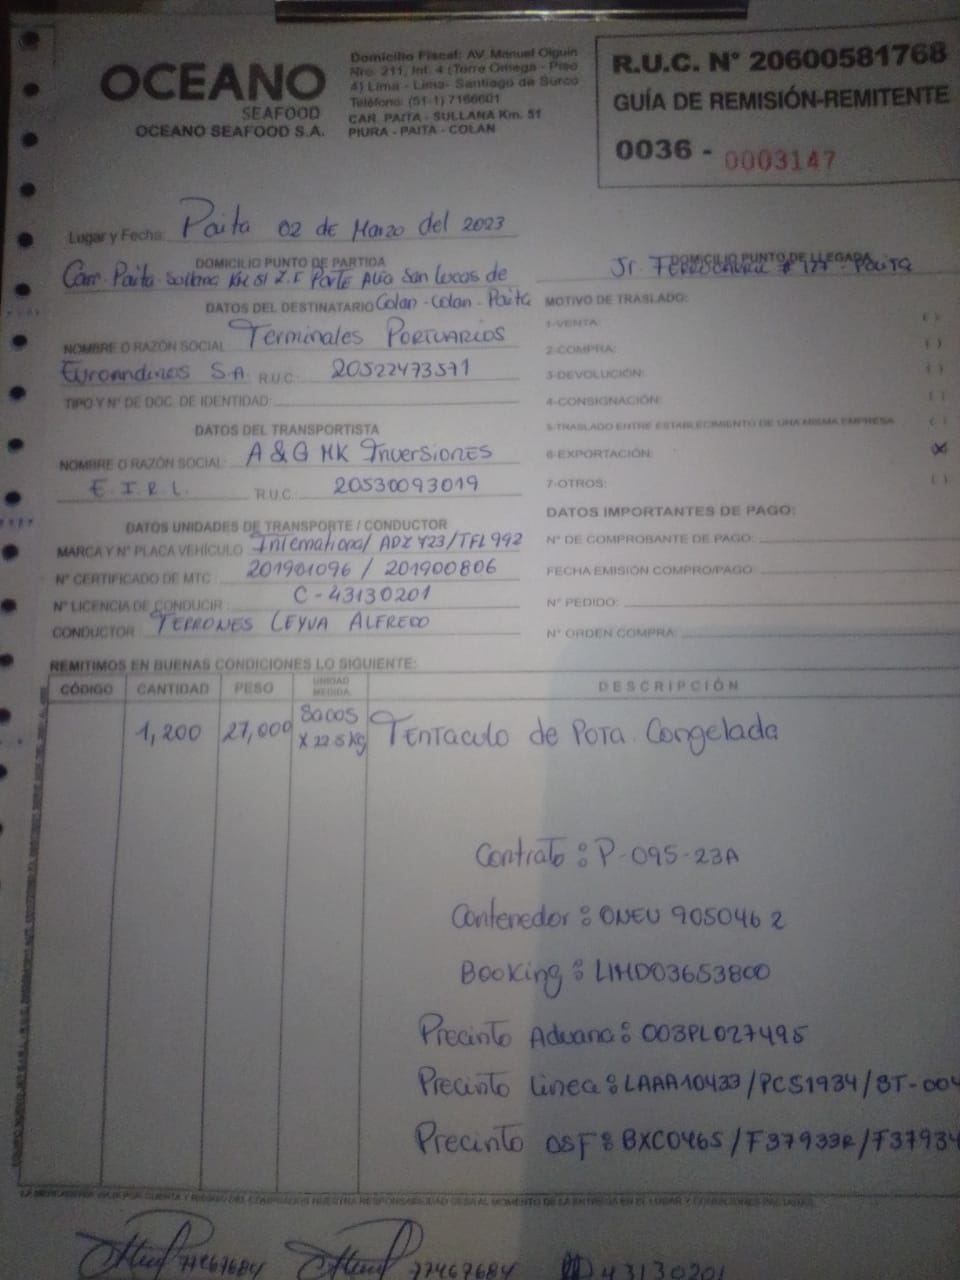 OCEANO
SEAFOOD
OCEANO SEAFOOD S.A.
Domicilio Fiscal: AV. Manuel Olguin
Nro. 211, Int. 4 (Torre Omega - Piso
4) Lima - Lima- Santiago de Surco
Teléfono: (51-1) 7166601
CAR. PAITA - SULLANA Km. 51
PIURA - PAITA - COLAN
R.U.C. N° 20600581768
GUÍA DE REMISIÓN-REMITENTE
0036 - 0003147
Lugar y Fecha: Paita 02 de Marzo del 2023
DOMICILIO PUNTO DE PARTIDA
Carr. Paita Sullana KM 51 Z.I Parte Alta San Lucas de
Colan - Colan - Paita
DOMICILIO PUNTO DE LLEGADA
Jr. FERROCARRIL # 127 - Paita
DATOS DEL DESTINATARIO
NOMBRE O RAZÓN SOCIAL Terminales PORTUARIOS
Euroandinos S A. R.U.C.: 20522473571
TIPO Y N° DE DOC. DE IDENTIDAD:
DATOS DEL TRANSPORTISTA
NOMBRE O RAZÓN SOCIAL: A & G MK Inversiones
E. I. R. L. R.U.C.: 20530093019
DATOS UNIDADES DE TRANSPORTE / CONDUCTOR
MARCA Y N° PLACA VEHÍCULO International/ ADZ 723/TFL 992
N° CERTIFICADO DE MTC : 201901096 / 201900806
N° LICENCIA DE CONDUCIR : C - 43130201
CONDUCTOR TERRONES LEYVA ALFREDO
MOTIVO DE TRASLADO:
1-VENTA: ( )
2-COMPRA: ( )
3-DEVOLUCIÓN: ( )
4-CONSIGNACIÓN: ( )
5-TRASLADO ENTRE ESTABLECIMIENTO DE UNA MISMA EMPRESA ( )
6-EXPORTACIÓN: (X)
7-OTROS: ( )
DATOS IMPORTANTES DE PAGO:
N° DE COMPROBANTE DE PAGO:
FECHA EMISIÓN COMPRO/PAGO:
N° PEDIDO:
N° ORDEN COMPRA:
REMITIMOS EN BUENAS CONDICIONES LO SIGUIENTE:
CÓDIGO CANTIDAD PESO UNIDAD MEDIDA DESCRIPCIÓN
1,200 27,000 SACOS X 22.5 Kg TENTACULO de POTA Congelada
Contrato : P-095-23A
Contenedor : ONEU 905046 2
Booking : LIMD03653800
Precinto Aduana : 003PL027495
Precinto Linea : LAAA10433/PCS1934/ST-004
Precinto OSF : BXC0465/F37933R/F37934
77467684 77467684 43130201